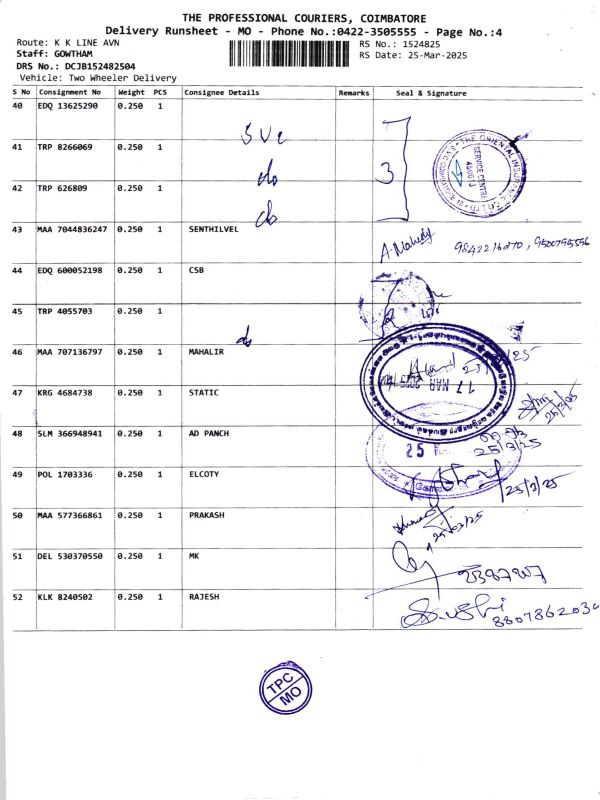 THE PROFESSIONAL COURIERS, COIMBATORE
Delivery Runsheet - MO - Phone No.:0422-3505555 - Page No.:4
Route: K K LINE AVN
RS No.: 1524825
Staff: GOWTHAM
RS Date: 25-Mar-2025
DRS No.: DCJB152482504
Vehicle: Two Wheeler Delivery
S No Consignment No Weight PCS Consignee Details Remarks Seal & Signature
40 EDQ 13625290 0.250 1
SVC
41 TRP 8266069 0.250 1
do
3
THE ORIENTAL INSURANCE
SERVICE CENTRE
42 TRP 626809 0.250 1
do
43 MAA 7044836247 0.250 1 SENTHILVEL
9500795556
44 EDQ 600052198 0.250 1 CSB
45 TRP 4055703 0.250 1
do
46 MAA 707136797 0.250 1 MAHALIR
17 MAR
47 KRG 4684738 0.250 1 STATIC
25/3/25
48 SLM 366948941 0.250 1 AD PANCH
25/3/25
49 POL 1703336 0.250 1 ELCOTY
25/3/25
50 MAA 577366861 0.250 1 PRAKASH
25/03/25
51 DEL 530370550 0.250 1 MK
52 KLK 8240502 0.250 1 RAJESH
8807862030
TPC
MO